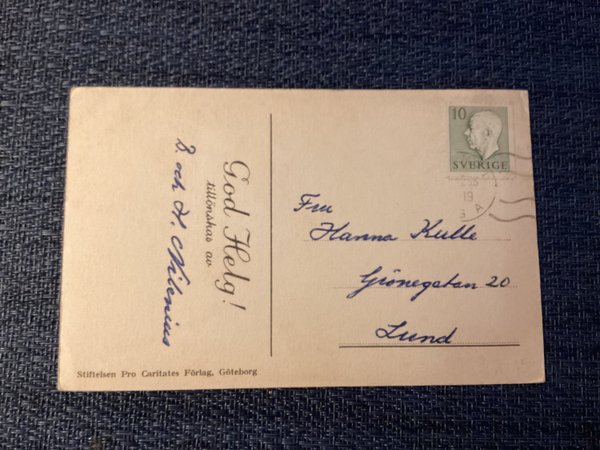 God Helg!
tillönskas av
D. och H. Nilenius
Stiftelsen Pro Caritates Förlag, Göteborg
10
SVERIGE
19
Fru
Hanna Kulle
Grönegatan 20
Lund